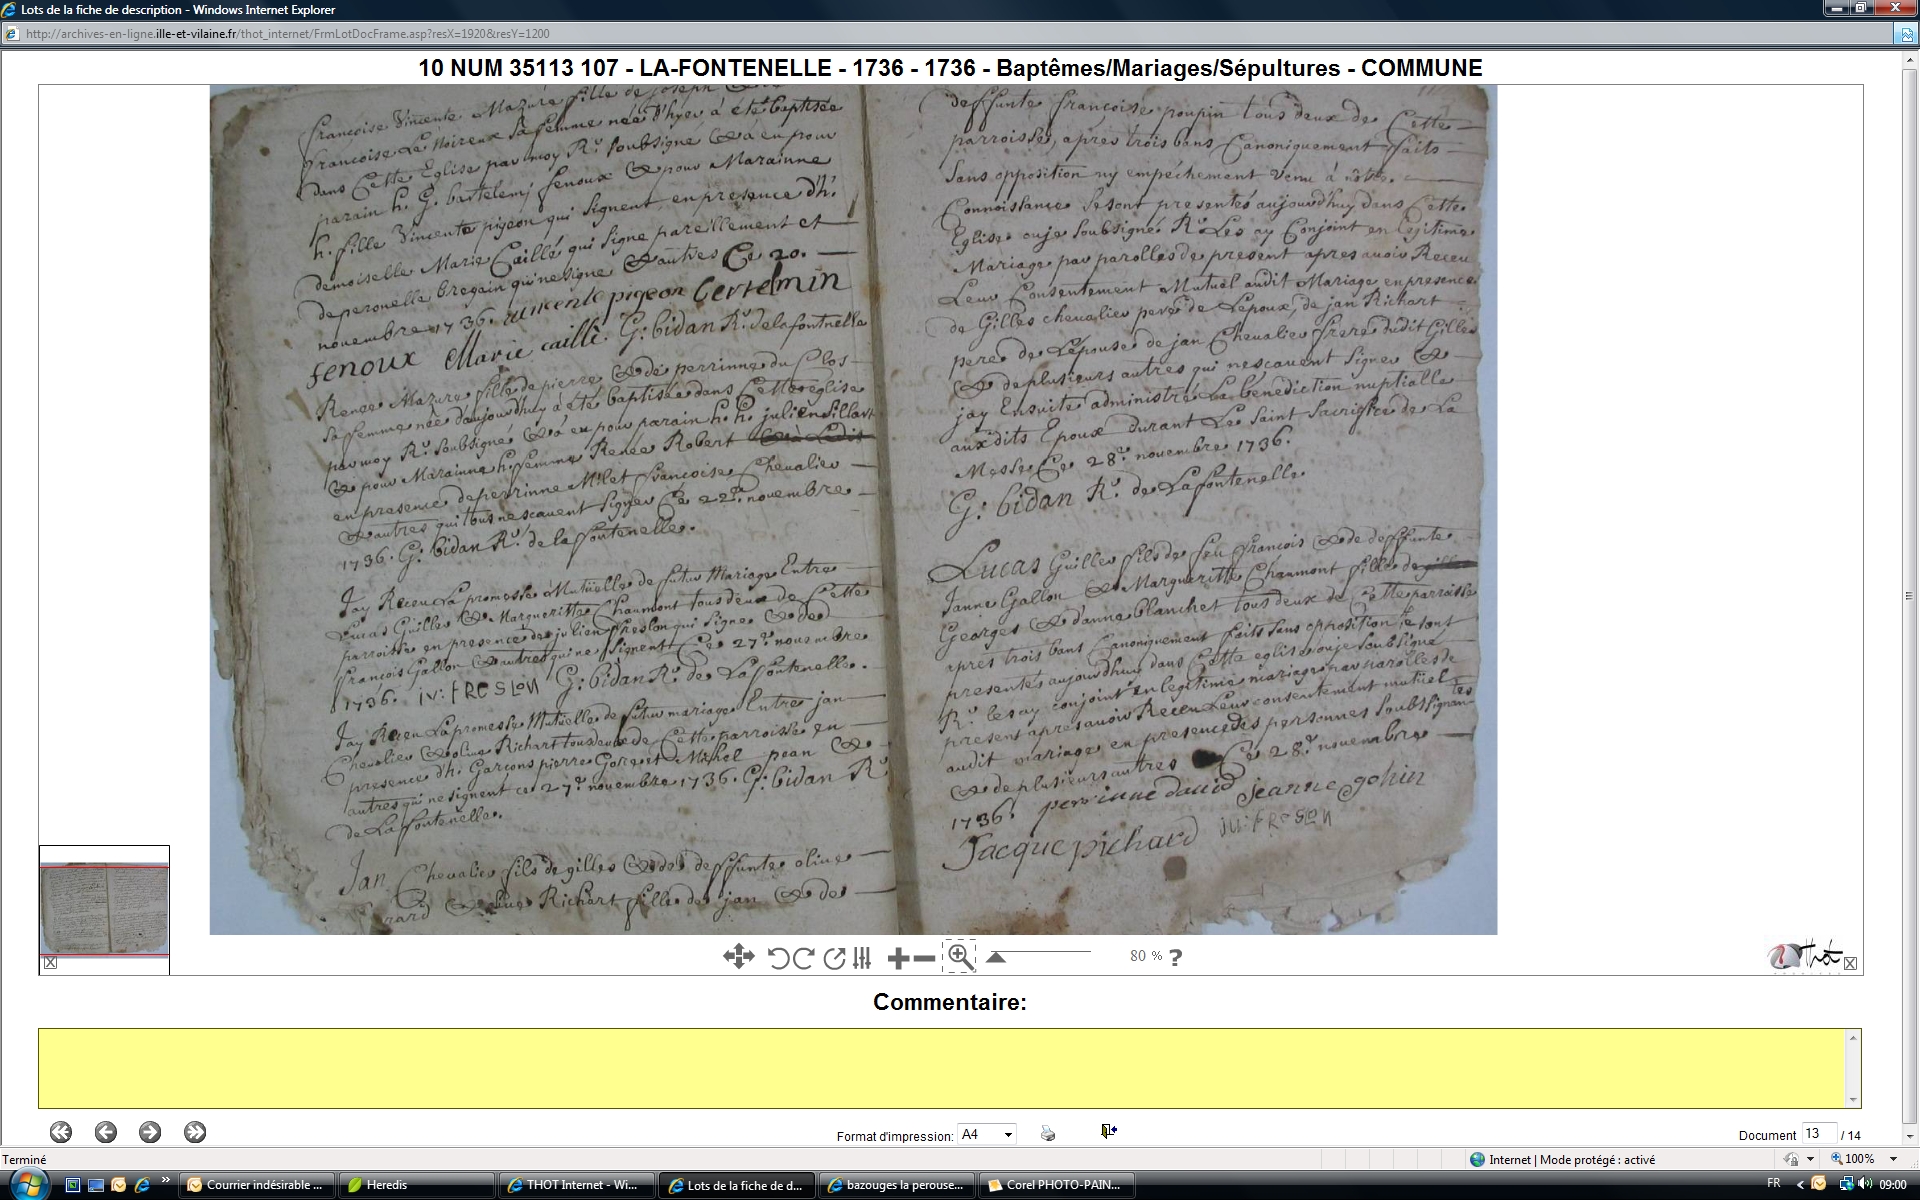 Lots de la fiche de description - Windows Internet Explorer
http://archives-en-ligne.ille-et-vilaine.fr/thot_internet/FrmLotDocFrame.asp?resX=1920&resY=1200
10 NUM 35113 107 - LA-FONTENELLE - 1736 - 1736 - Baptêmes/Mariages/Sépultures - COMMUNE
françoise Vincente Mazure fille de joseph
françoise Le Noireux sa femme née d'hyer à eté baptisée
dans Cette Eglise par moy Rr. soubsigné & à eu pour
parain h. G. bartelemj fenoux & pour Marainne
h. fille Vincente pigeon qui signent en presence d'h.
demoiselle Marie Caillé qui signe pareillement et
de peronelle bregain qui ne signe & autres Ce 20.
novembre 1736. vincente pigeon bertelmin
fenoux Marie caille. G: bidan Rr. de lafontnelle
Renee Mazure fille de pierre & de perrinne du Clos
sa femme née d'aujourd'huy à eté baptisée dans Cette eglise
par moy Rr. soubsigné & à eu pour parain h. h. julien sillart
& pour Marainne h. femme Renée Robert
en presence de perrinne Milet françoise Chevalier
& autres qui tous ne scavent signer Ce 22e. novembre
1736. G: bidan Rr. de la fontenelle.
Jay Receu La promesse Mutüelle de futur Mariage Entre
Lucas Guilles & Margueritte Chaumont tous deux de Cette
parroisse en presence de julien freslon qui signe & de
françois Gallon & autres qui ne signent Ce 27e. novembre
1736. iu: FRESLON G: bidan Rr. de La fontenelle.
Jay Receu La promesse Mutuelle de futur mariage Entre jan
Chevalier & olive Richart tous deux de Cette parroisse en
presence d'h. Garçons pierre Goret et Michel pean &
autres qui ne signent ce 27e. novembre 1736. G: bidan Rr
de La fontenelle.
Jan Chevalier fils de gilles & de deffunte olive
& olive Richart fille de jan & de
deffunte françoise poupin tous deux de Cette
parroisse, apres trois bans Canoniquement faits
sans opposition ny empéchement venu à nôtre
Connoissance se sont presentés aujourd'huy dans Cette
Eglise ou je soubsigné Rr. Les ay Conjoint en Legitime
Mariage par parolles de present apres avoir Receu
Leur Consentement Mutuel audit Mariage en presence
de Gilles chevalier pere de L'époux, de jan Richart
pere de L'épouse de jan Chevalier frere dudit Gilles
& de plusieurs autres qui ne scavent signer &
jay Ensuite administré La benediction nuptialle
aux dits Epoux durant Le saint sacrifice de La
Messe Ce 28e. novembre 1736.
G: bidan Rr. de La fontenelle.
Lucas Guilles fils de feu françois & de deffunte
Janne Gallon & Margueritte Chaumont fille de
Georges & d'anne blanchet tous deux de Cette parroisse
apres trois bans Canoniquement faits sans opposition se sont
presentés aujourd'huy dans Cette eglise ou je soubsigné
Rr. les ay conjoint en legitime mariage par parolles de
present apres avoir Receu Leur consentement mutuel
audit mariage en presence des personnes soubssignantes
& de plusieurs autres Ce 28e. novembre
1736. perrinne david jeanne gohin
Jacque pichard iu: FRESLON
80 % ?
Thot
Commentaire:
Format d'impression: A4
Document 13 / 14
Terminé
Internet | Mode protégé : activé
100%
Courrier indésirable ...
Heredis
THOT Internet - Wi...
Lots de la fiche de d...
bazouges la perouse...
Corel PHOTO-PAIN...
FR
09:00